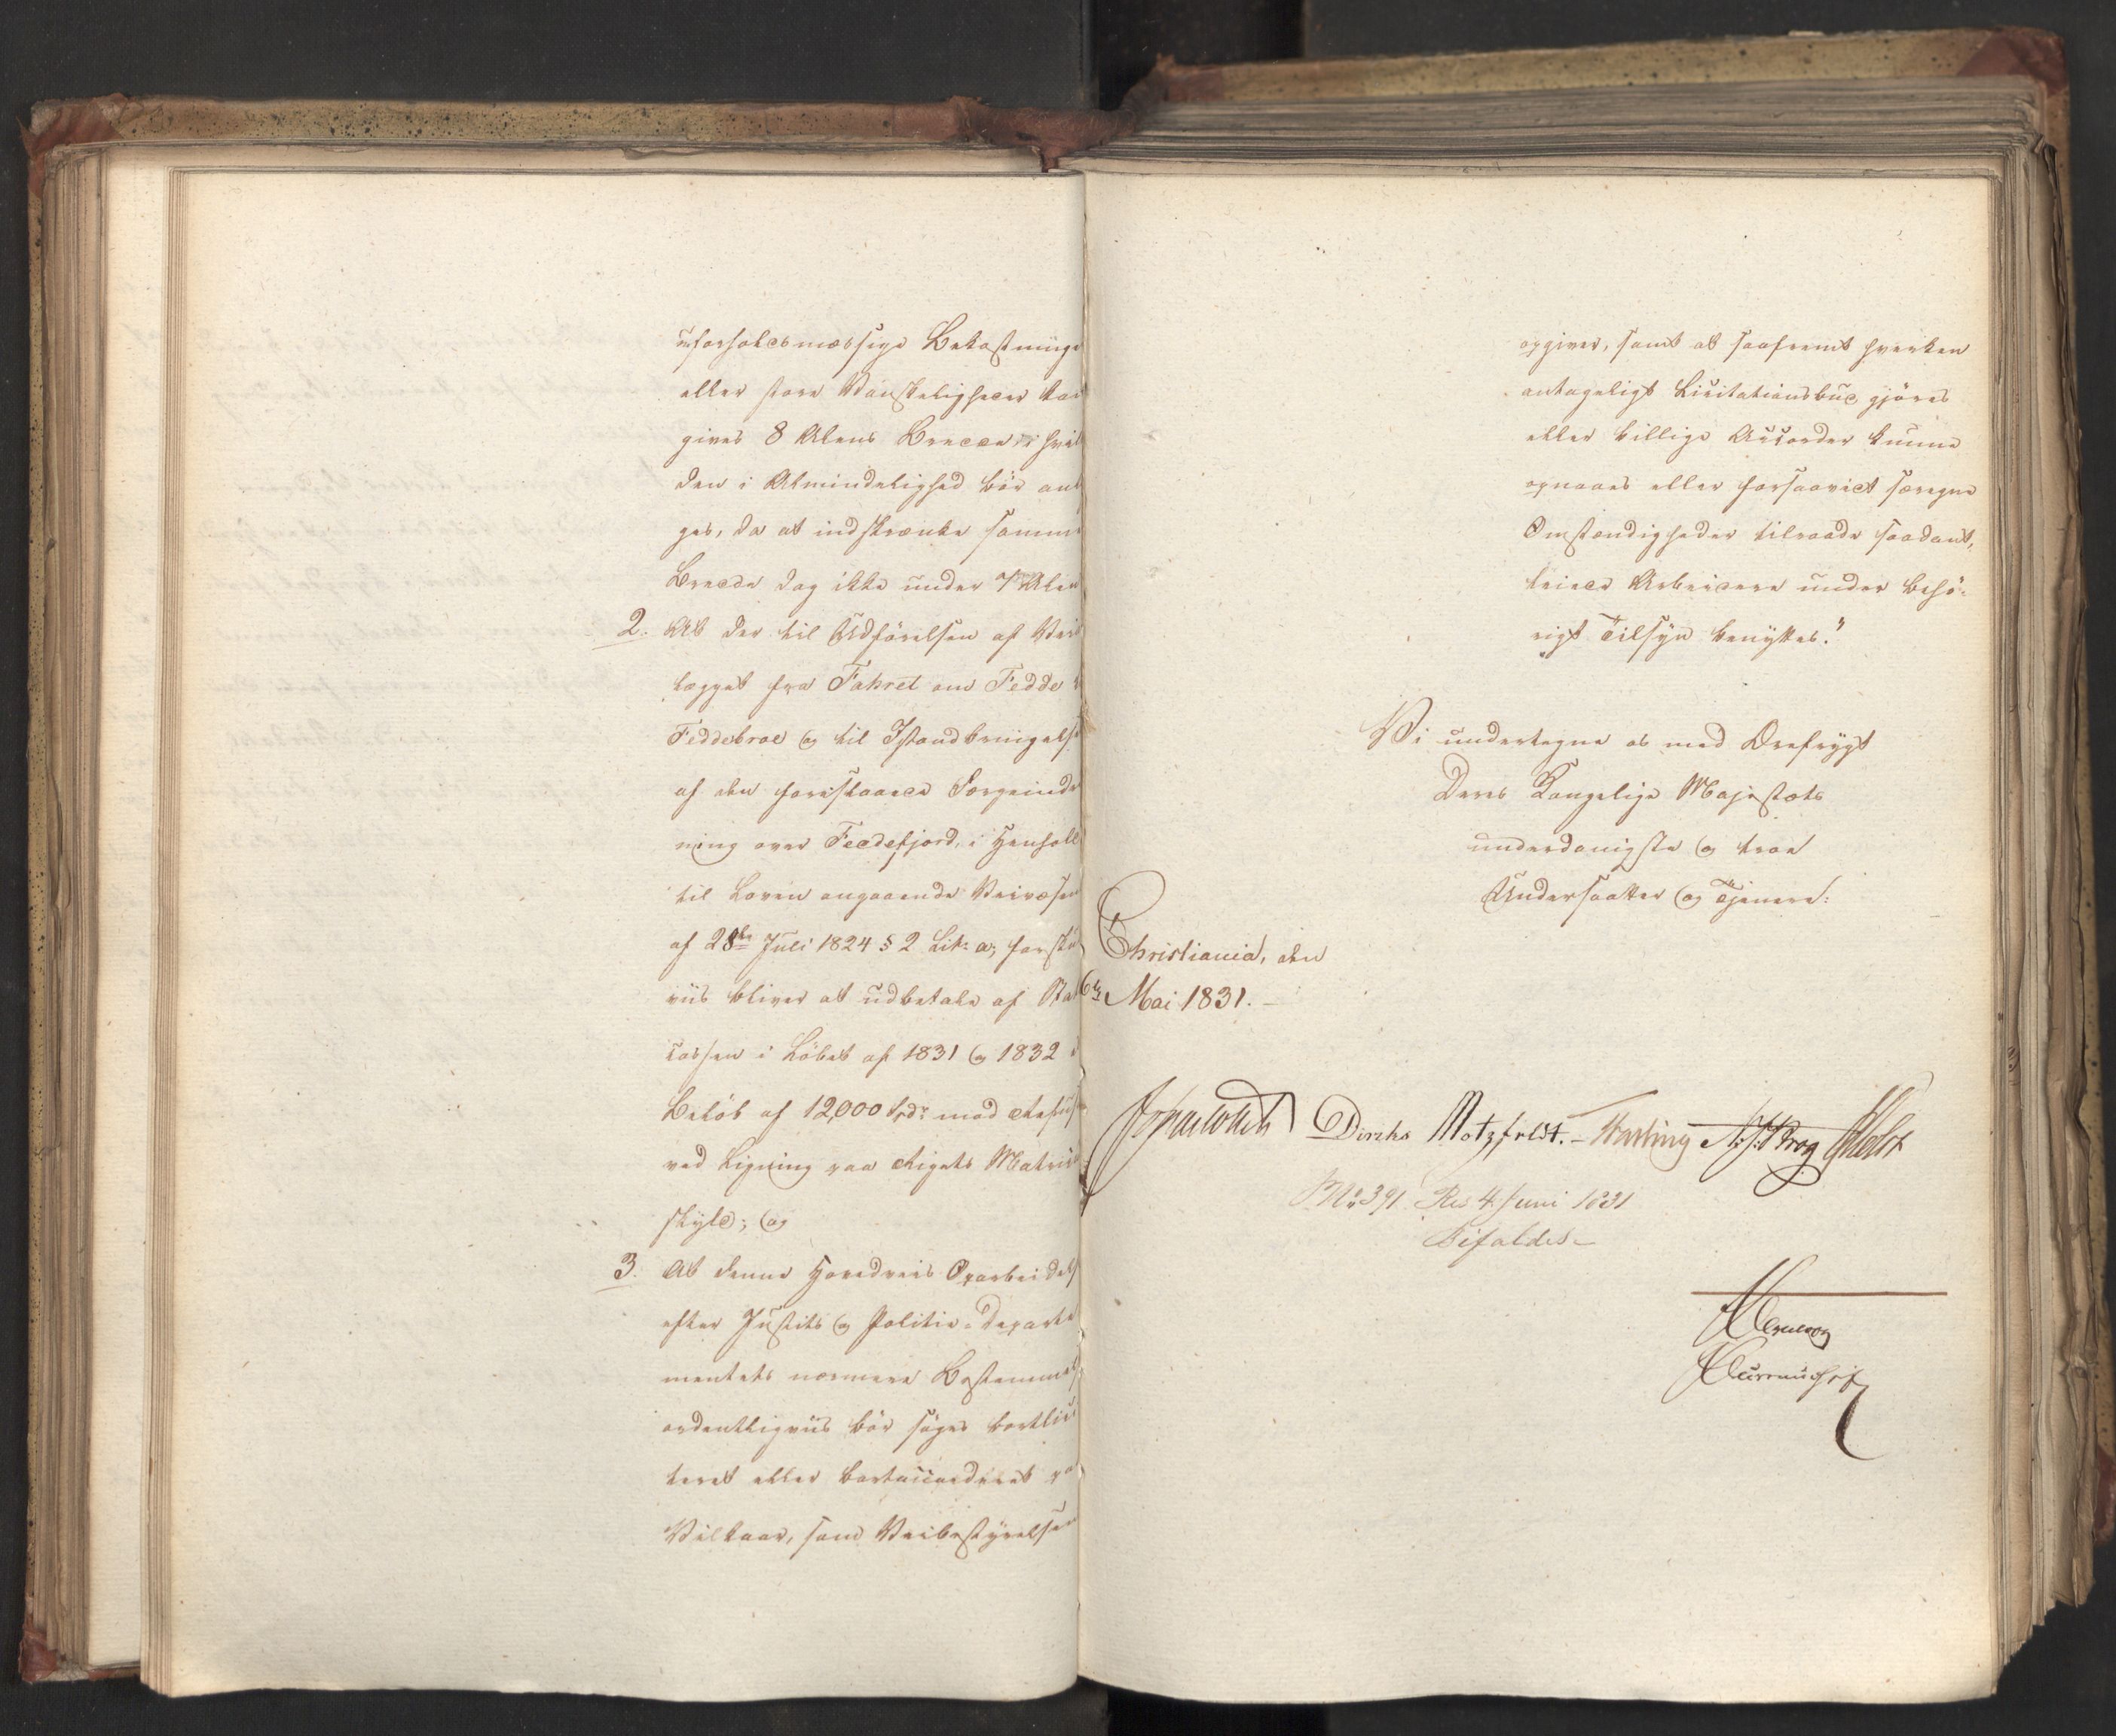 uforholdsmæssige Bekostninge
eller store Vanskeligheder kan
gives 8 Alens Bredde, i hvil
den i Almindelighed bör ant
ges, da at indskrænke samme
Bredde dog ikke under 7 Alen
2. At der til Udförelsen af Vei
lægget fra Fahret om Fedde
Feddebroe og til Istandbringelse
af den foreslaaede Færgeindr
ning over Feddefjord, i Henhold
til Loven angaaende Veivæsen
af 28de Juli 1824 § 2 Lit: a, forskü
viis bliver at udbetale af Stat
cassen i Löbet af 1831 og 1832
Belöb af 12,000 Spdr mod Refus
ved Ligning paa Rigets Matric
skyld; og
3. At denne Hovedveis Oparbeidels
efter Justits og Politie-Departe
mentets nærmere Bestemmels
ordentligviis bör söges bortlici
teret eller bortaccorderet pa
Vilkaar, som Veibestyrelsen
opgiver, samt at saafremt hverken
antageligt Licitationsbud gjöres
eller billige Accorder kunne
opnaaes eller forsaavidt særegne
Omstændigheder tilraade saadant,
leiede Arbeidere under behö-
rigt Tilsyn benyttes."
Vi undertegne os med Ærefrygt
Deres Kongelige Majestæts
underdanigste og troe
Undersaatter og Tjenere:
Christiania, den
6te Mai 1831.
Diriks Motzfeldt. N. J. Krog Holst
No 391. Res 4 Juni 1831
Bifaldes